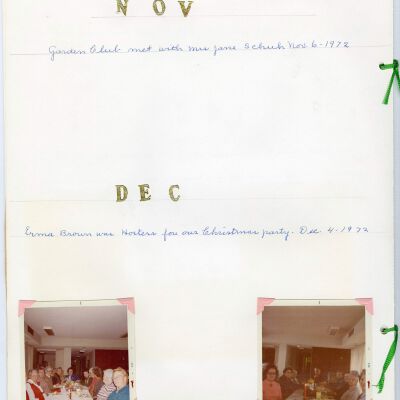 NOV
Garden Club met with Mrs Jane Schuh Nov. 6-1972
DEC
Erma Brown was Hostess for our Christmas party. Dec. 4-1972